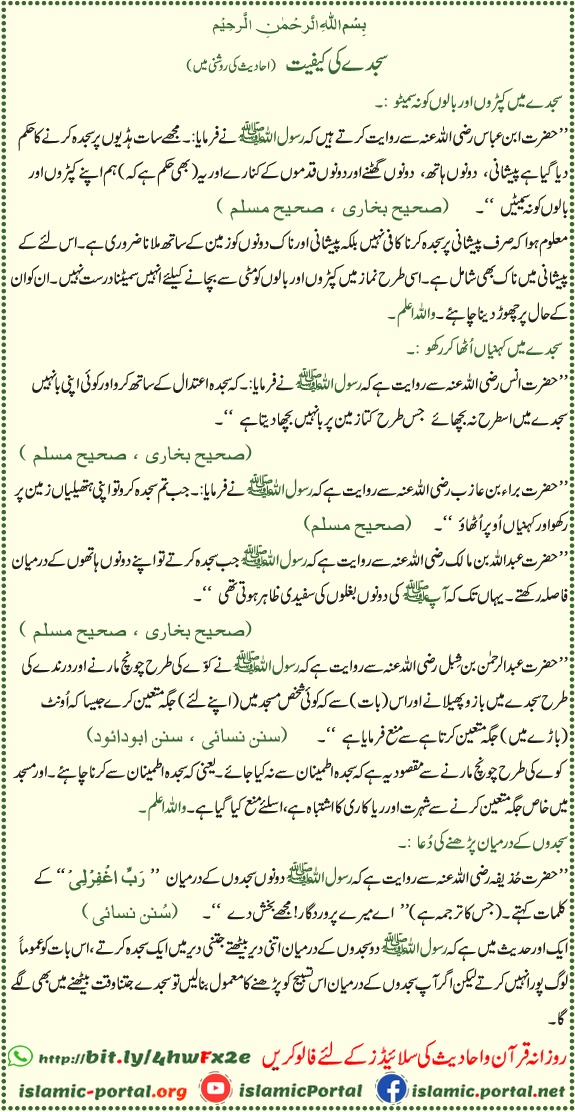 بِسْمِ اللهِ الرَّحْمٰنِ الرَّحِيْمِ
سجدے کی کیفیت (احادیث کی روشنی میں)
سجدے میں کپڑوں اور بالوں کو نہ سمیٹو :۔
’’حضرت ابن عباس رضی اللہ عنہ سے روایت کرتے ہیں کہ رسول اللہ ﷺ نے فرمایا:۔ مجھے سات ہڈیوں پر سجدہ کرنے کا حکم
دیا گیا ہے پیشانی، دونوں ہاتھ، دونوں گھٹنے اور دونوں قدموں کے کنارے اور یہ (بھی حکم ہے کہ) ہم اپنے کپڑوں اور
بالوں کو نہ سمیٹیں ‘‘۔ (صحیح بخاری ، صحیح مسلم )
معلوم ہوا کہ صرف پیشانی پر سجدہ کرنا کافی نہیں بلکہ پیشانی اور ناک دونوں کو زمین کے ساتھ ملانا ضروری ہے۔ اس لئے کے
پیشانی میں ناک بھی شامل ہے۔ اسی طرح نماز میں کپڑوں اور بالوں کو مٹی سے بچانے کیلئے انہیں سمیٹنا درست نہیں۔ ان کو ان
کے حال پر چھوڑ دینا چاہئے۔ واللہ اعلم۔
سجدے میں کہنیاں اُٹھا کر رکھو :۔
’’حضرت انس رضی اللہ عنہ سے روایت ہے کہ رسول اللہ ﷺ نے فرمایا:۔ کہ سجدہ اعتدال کے ساتھ کرو اور کوئی اپنی بانہیں
سجدے میں اسطرح نہ بچھائے جس طرح کتا زمین پر بانہیں بچھا دیتا ہے ‘‘۔
(صحیح بخاری ، صحیح مسلم )
’’حضرت براء بن عازب رضی اللہ عنہ سے روایت ہے کہ رسول اللہ ﷺ نے فرمایا:۔ جب تم سجدہ کرو تو اپنی ہتھیلیاں زمین پر
رکھو اور کہنیاں اُوپر اُٹھاؤ ‘‘۔ (صحیح مسلم)
’’حضرت عبداللہ بن مالک رضی اللہ عنہ سے روایت ہے کہ رسول اللہ ﷺ جب سجدہ کرتے تو اپنے دونوں ہاتھوں کے درمیان
فاصلہ رکھتے۔ یہاں تک کہ آپ ﷺ کی دونوں بغلوں کی سفیدی ظاہر ہوتی تھی ‘‘۔
(صحیح بخاری ، صحیح مسلم )
’’حضرت عبدالرحمٰن بن شِبل رضی اللہ عنہ سے روایت ہے کہ رسول اللہ ﷺ نے کوّے کی طرح چونچ مارنے اور درندے کی
طرح سجدے میں بازو پھیلانے اور اس (بات) سے کہ کوئی شخص مسجد میں (اپنے لئے) جگہ متعین کرے جیسا کہ اُونٹ
(باڑے میں) جگہ متعین کرتا ہے سے منع فرمایا ہے ‘‘۔ (سنن نسائی ، سنن ابودائود)
کوے کی طرح چونچ مارنے سے مقصود یہ ہے کہ سجدہ اطمینان سے نہ کیا جائے۔ یعنی کہ سجدہ اطمینان سے کرنا چاہئے۔ اور مسجد
میں خاص جگہ متعین کرنے سے شہرت اور ریا کاری کا اشتباہ ہے، اسلئے منع کیا گیا ہے۔ واللہ اعلم۔
سجدوں کے درمیان پڑھنے کی دُعا :۔
’’حضرت حُذیفہ رضی اللہ عنہ سے روایت ہے کہ رسول اللہ ﷺ دونوں سجدوں کے درمیان ’’ رَبِّ اغْفِرْلِیْ ‘‘ کے
کلمات کہتے۔ (جس کا ترجمہ ہے) ’’ اے میرے پروردگار! مجھے بخش دے ‘‘۔ (سُنن نسائی )
ایک اور حدیث میں ہے کہ رسول اللہ ﷺ دو سجدوں کے درمیان اتنی دیر بیٹھتے جتنی دیر میں ایک سجدہ کرتے، اس بات کو عموماً
لوگ پورا نہیں کرتے لیکن اگر آپ سجدوں کے درمیان اس تسبیح کو پڑھنے کا معمول بنا لیں تو سجدے جتنا وقت بیٹھنے میں بھی لگے
گا۔
روزانہ قرآن و احادیث کی سلائیڈز کے لئے فالو کریں http://bit.ly/4hwFx2e
islamic-portal.org islamicPortal islamic.portal.net